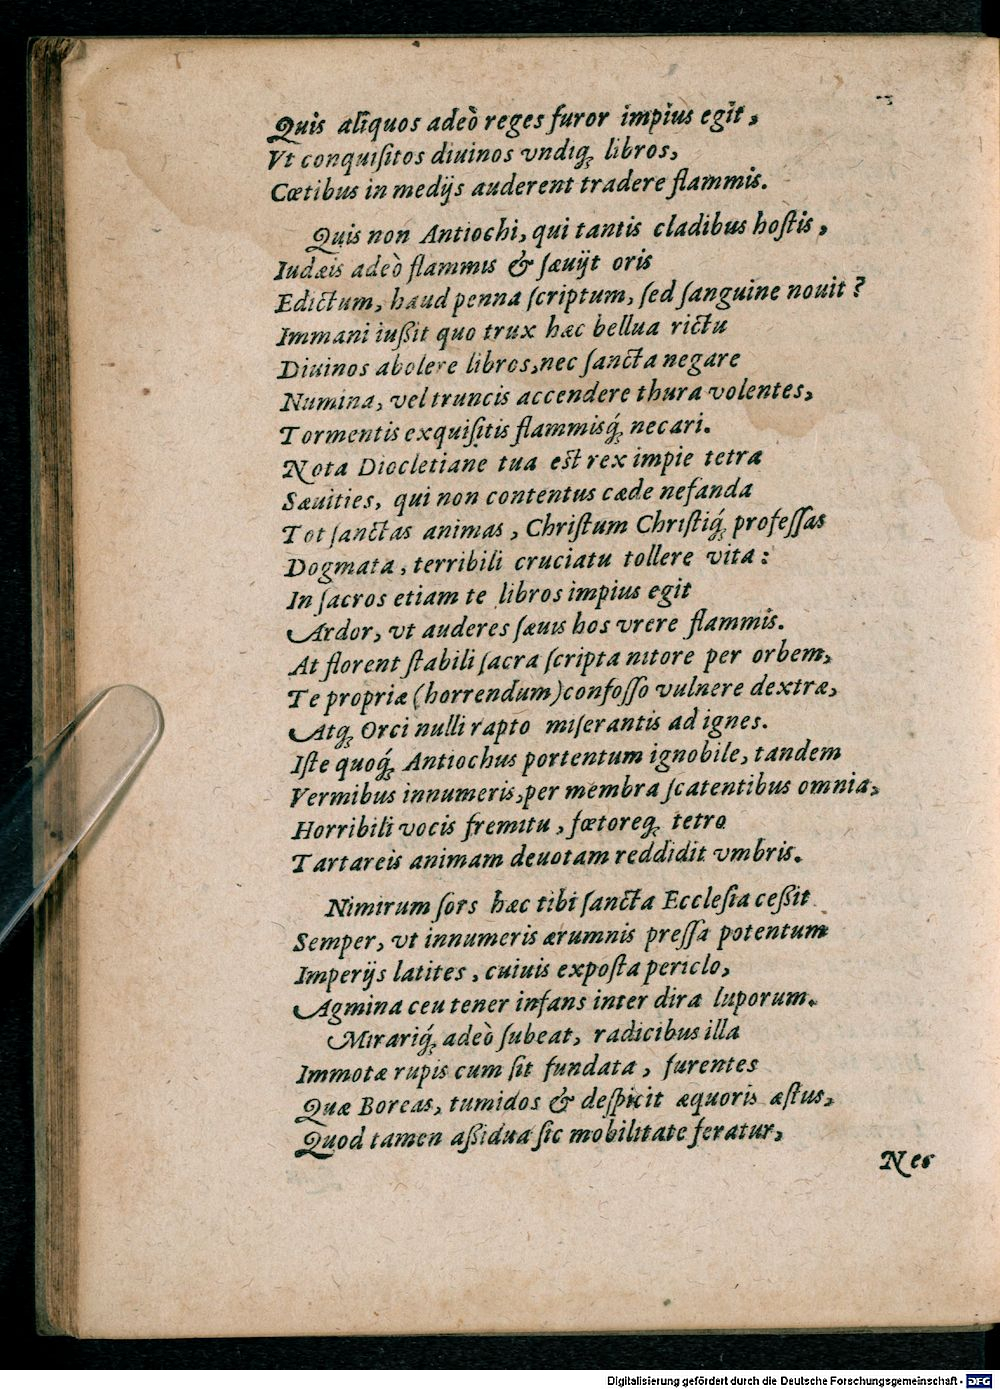 Quis aliquos adeò reges furor impius egit,
Vt conquiſitos diuinos vndiq; libros,
Cœtibus in medijs auderent tradere flammis.
Quis non Antiochi, qui tantis cladibus hoſtis,
Iudæis adeò flammis & ſæuijt oris
Edictum, haud penna ſcriptum, ſed ſanguine nouit?
Immani iußit quo trux hæc bellua rictu
Diuinos abolere libros, nec ſancta negare
Numina, vel truncis accendere thura volentes,
Tormentis exquiſitis flammisq́; necari.
Nota Diocletiane tua est rex impie tetra
Sæuities, qui non contentus cæde nefanda
Tot ſanctas animas, Chriſtum Chriſtiq́; profeſſas
Dogmata, terribili cruciatu tollere vita:
In ſacros etiam te libros impius egit
Ardor, vt auderes ſæuis hos vrere flammis.
At florent ſtabili ſacra ſcripta nitore per orbem,
Te propriæ (horrendum) confoſſo vulnere dextræ,
Atq; Orci nulli rapto miſerantis ad ignes.
Iſte quoq́; Antiochus portentum ignobile, tandem
Vermibus innumeris, per membra ſcatentibus omnia,
Horribili vocis fremitu, fœtoreq; tetro
Tartareis animam deuotam reddidit vmbris.
Nimirum ſors hæc tibi ſancta Eccleſia ceßit
Semper, vt innumeris ærumnis preſſa potentum
Imperijs latites, cuiuis expoſta periclo,
Agmina ceu tener infans inter dira luporum.
Mirariq́; adeò ſubeat, radicibus illa
Immotæ rupis cum ſit fundata, furentes
Quæ Boreas, tumidos & deſpicit æquoris æſtus,
Quod tamen aßidua ſic mobilitate feratur,
Nes
Digitalisierung gefördert durch die Deutsche Forschungsgemeinschaft - DFG